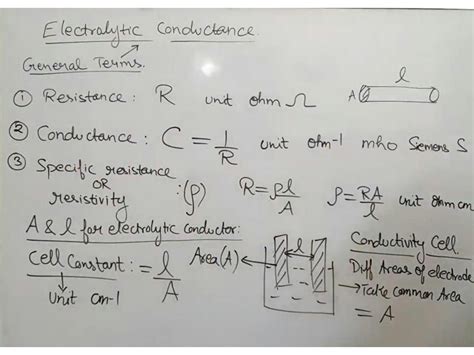 Electrolytic Conductance.
General Terms.
① Resistance : R unit ohm Ω
l
A
② Conductance : C = 1/R unit ohm-1 mho Siemens S
③ Specific resistance
OR
resistivity
:(ρ) R = ρl/A ρ = RA/l unit ohm cm
A & l for electrolytic conductor:
Cell Constant : = l/A
Unit cm-1
Area(A)
l
Conductivity Cell.
Diff Areas of electrode
→ Take common Area
= A